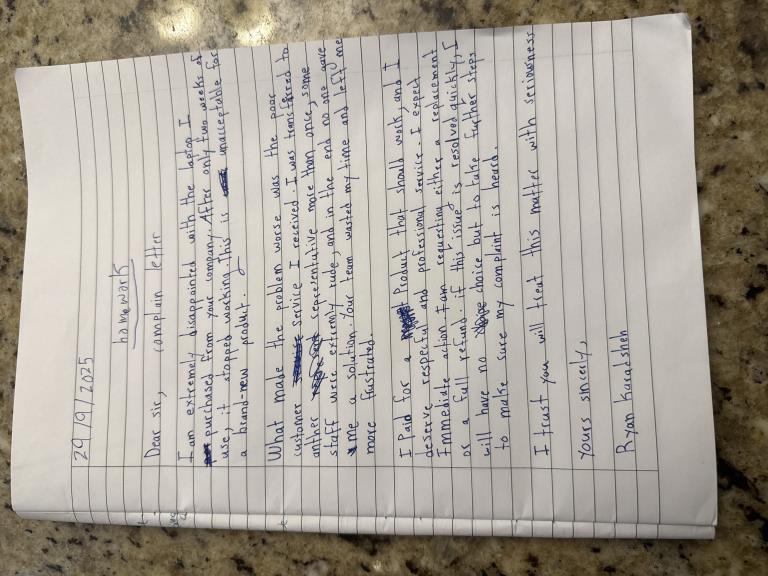 29/9/2025
homework
Dear sir, complain letter
I am extremely disappointed with the laptop I
purchased from your company. After only two weeks of
use, it stopped working. This is unacceptable for
a brand-new product.
What made the problem worse was the poor
customer service I received. I was transferred to
anther representative more than once, some
staff were extremly rude, and in the end no one gave
me a solution. Your team wasted my time and left me
more frustrated.
I Paid for a Product that should work, and I
deserve respectful and professional service. I expect
Immediate action I am requesting either a replacement
or a full refund. if this issue is resolved quickly, I
will have no choice but to take further steps
to make sure my complaint is heard.
I trust you will treat this matter with seriowsness
yours sincerly,
Ryan Karadsheh